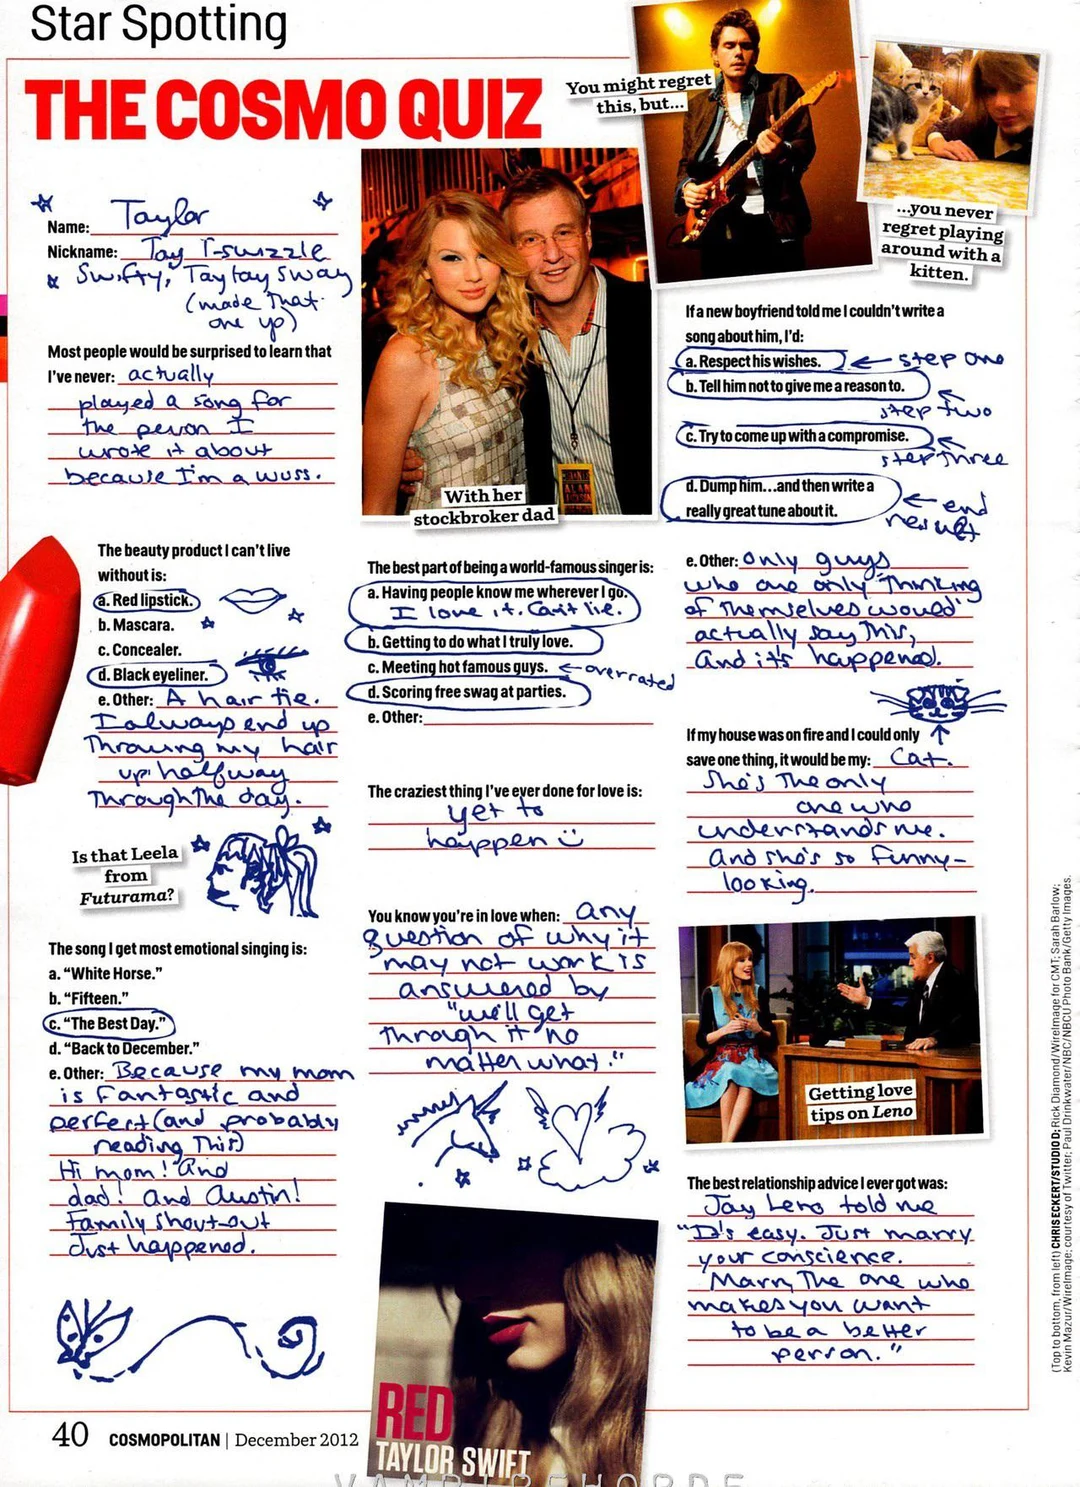 Star Spotting
THE COSMO QUIZ
You might regret
this, but...
...you never
regret playing
around with a
kitten.
Name: Taylor
Nickname: Tay T-swizzle
Swifty, Taytay Sway
(made that
one up)
Most people would be surprised to learn that
I've never: actually
played a song for
the person I
wrote it about
because I'm a wuss.
With her
stockbroker dad
The beauty product I can't live
without is:
a. Red lipstick.
b. Mascara.
c. Concealer.
d. Black eyeliner.
e. Other: A hair tie.
I always end up
Throwing my hair
up halfway
Through the day.
Is that Leela
from
Futurama?
The song I get most emotional singing is:
a. “White Horse.”
b. “Fifteen.”
c. “The Best Day.”
d. “Back to December.”
e. Other: Because my mom
is Fantastic and
perfect (and probably
reading This)
Hi mom! And
dad! And Austin!
Family shout-out
Just happened.
The best part of being a world-famous singer is:
a. Having people know me wherever I go.
I love it. Can't lie.
b. Getting to do what I truly love.
c. Meeting hot famous guys. ← overrated
d. Scoring free swag at parties.
e. Other:
The craziest thing I've ever done for love is:
yet to
happen
You know you're in love when: any
question of why it
may not work is
answered by
"we'll get
through it no
matter what."
RED
TAYLOR SWIFT
If a new boyfriend told me I couldn't write a
song about him, I'd:
a. Respect his wishes. ← step one
b. Tell him not to give me a reason to.
step two
c. Try to come up with a compromise.
step three
d. Dump him...and then write a
really great tune about it.
← end
result
e. Other: only guys
who are only Thinking
of Themselves would
actually say This,
And it's happened.
If my house was on fire and I could only
save one thing, it would be my: Cat.
She's The only
one who
understands me.
And she's so funny-
looking.
Getting love
tips on Leno
The best relationship advice I ever got was:
Jay Leno told me
"It's easy. Just marry
your conscience.
Marry The one who
makes you want
to be a better
person."
(Top to bottom, from left) CHRIS ECKERT/STUDIO D; Rick Diamond/WireImage for CMT; Sarah Barlow;
Kevin Mazur/WireImage; courtesy of Twitter; Paul Drinkwater/NBC/NBCU Photo Bank/Getty Images.
40 COSMOPOLITAN | December 2012